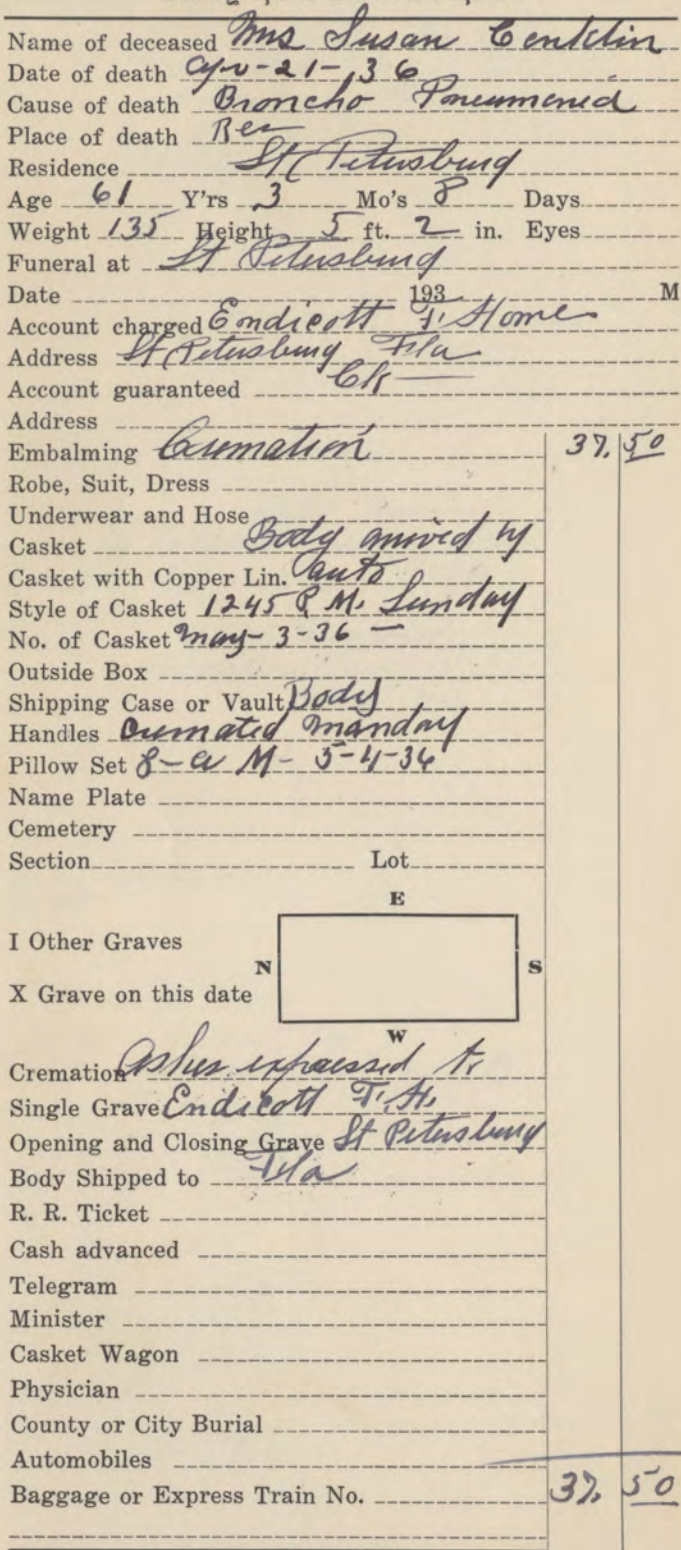 Name of deceased Mrs Susan Conklin
Date of death Apr-21-36
Cause of death Broncho Pneumonia
Place of death Res
Residence St Petersburg
Age 61 Y'rs 3 Mo's 8 Days
Weight 135 Height 5 ft. 2 in. Eyes
Funeral at St Petersburg
Date 193 M
Account charged Endicott F. Home
Address St Petersburg Fla
Account guaranteed Ck
Address
Embalming Cremation 37.50
Robe, Suit, Dress
Underwear and Hose
Casket Body arrived by
Casket with Copper Lin. auto
Style of Casket 1245 P.M. Sunday
No. of Casket May-3-36
Outside Box
Shipping Case or Vault Body
Handles Cremated Monday
Pillow Set 8-A M- 5-4-36
Name Plate
Cemetery
Section Lot
E
I Other Graves
N S
X Grave on this date
W
Cremation Ashes expressed to
Single Grave Endicott F. H.
Opening and Closing Grave St Petersburg
Body Shipped to Fla
R. R. Ticket
Cash advanced
Telegram
Minister
Casket Wagon
Physician
County or City Burial
Automobiles
Baggage or Express Train No. 37.50